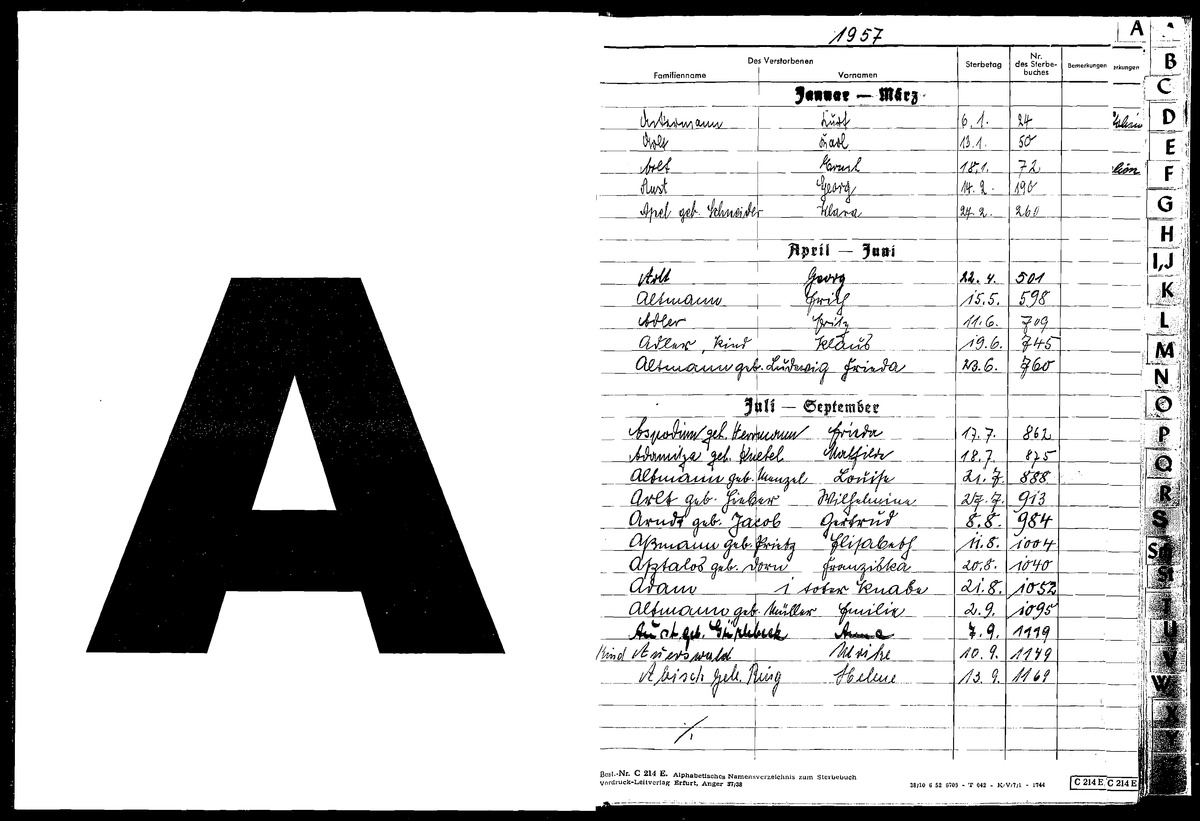 A
1957
Des Verstorbenen
Familienname Vornamen Sterbetag Nr. des Sterbebuches Bemerkungen
Januar — März
Ostermann Kurt 6. 1. 24
Arlt Karl 13. 1. 50
Arlt 18. 1. 72
Aust Georg 14. 2. 190
Apel geb. Schneider Klara 24. 2. 260
April — Juni
Arlt Georg 22. 4. 501
Altmann Erich 15. 5. 598
Adler Fritz 11. 6. 709
Adler, Kind Klaus 19. 6. 745
Altmann geb. Ludewig Frieda 23. 6. 760
Juli — September
geb. Herrmann Frieda 17. 7. 862
geb. Knetel Mathilde 18. 7. 875
Altmann geb. Menzel Louise 21. 7. 888
Arlt geb. Lieber Wilhelmine 27. 7. 913
Arndt geb. Jacob Gertrud 8. 8. 984
Aßmann geb. Prietz Elisabeth 11. 8. 1004
Asztalos geb. Dorn Franziska 20. 8. 1040
Adam 1 toter Knabe 21. 8. 1052
Altmann geb. Müller Emilie 2. 9. 1095
Aust geb. Anna 7. 9. 1119
Kind Auerswald Ulrike 10. 9. 1149
Abisch geb. Ring Helene 13. 9. 1169
Best.-Nr. C 214 E. Alphabetisches Namensverzeichnis zum Sterbebuch
Vordruck-Leitverlag Erfurt, Anger 37/38
C 214 E C 214 E
A
B
C
D
E
F
G
H
I,J
K
L
M
N
O
P
Q
R
S
Sch
St
T
U
V
W
X
Y